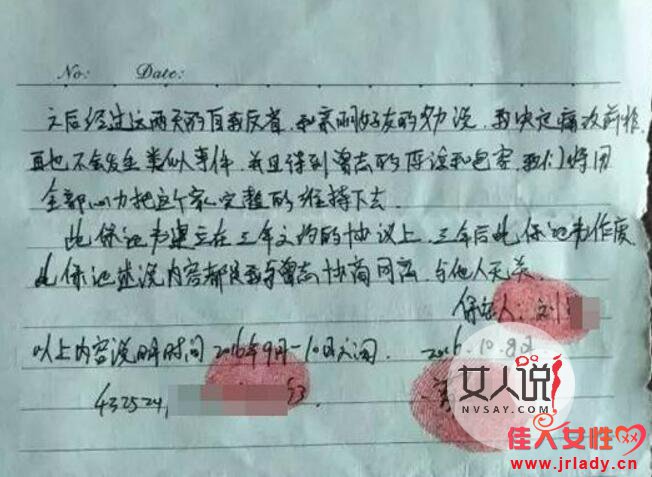 No: Date:
之后经过这两天的自我反省,和亲朋好友的劝说,我决定痛改前非,
再也不会发生类似事件,并且得到曾志的原谅和包容,我们将用
全部心力把这个家完整的维持下去。
此保证书建立在三年之约的协议上,三年后此保证书作废
此保证述说内容都是我与曾志协商同意,与他人无关
保证人:刘
以上内容说明时间2016年9月-10月之间. 2016.10.8日
432524, 93.
女人说!
NVSAY.COM
佳人女性网
www.jrlady.cn